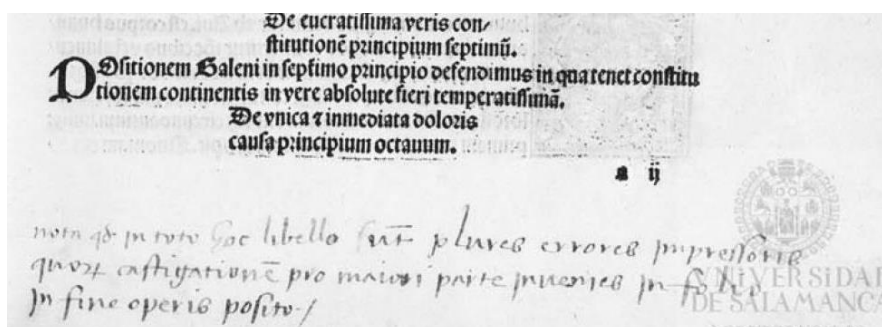 De eucratissima veris con/
stitutionē principium septimū.
POsitionem Galeni in septimo principio defendimus in qua tenet constitu
tionem continentis in vere absolute fieri temperatissimā.
De vnica ⁊ inmediata doloris
causa principium octauum.
a ij
nota qd in toto hoc libello sūt plures errores impressoris
quorꝝ castigationē pro maiori parte inuenies in folio
in fine operis posito /
VNiVERSiDAD
DE SALAMANCA